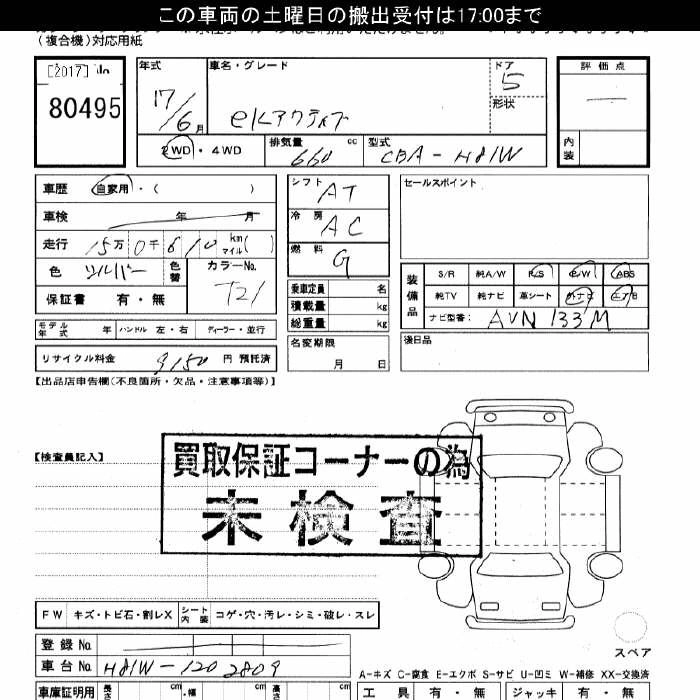 この車両の土曜日の搬出受付は17:00まで
(複合機)対応用紙
[2017] No
80495
年式 車名・グレード ドア 評価点
17/6月 eKアクティブ 5
形状
2WD・4WD 排気量 660 cc 型式 CBA-H81W 内装
車歴 自家用・( )
車検 年 月
走行 15万0千610 km マイル( )
色 シルバー 色替 カラーNo. T21
保証書 有・無
シフト AT
冷房 AC
燃料 G
乗車定員 名
積載量 kg
総重量 kg
セールスポイント
装備品 S/R 純A/W P/S P/W ABS
純TV 純ナビ 革シート 外ナビ エアB
ナビ型番: AVN 133M
モデル年式 年 ハンドル 左・右 ディーラー・並行
名変期限 月 日
後日品
リサイクル料金 9150 円 預託済
【出品店申告欄(不良箇所・欠品・注意事項等)】
【検査員記入】
買取保証コーナーの為
未検査
FW キズ・トビ石・割レX シート内装 コゲ・穴・汚レ・シミ・破レ・スレ
スペア
登録No.
車台No. H81W-1202809
A-キズ C-腐食 E-エクボ S-サビ U-凹ミ W-補修 XX-交換済
車庫証明用 長さ cm 幅 cm 高さ cm 工具 有・無 ジャッキ 有・無